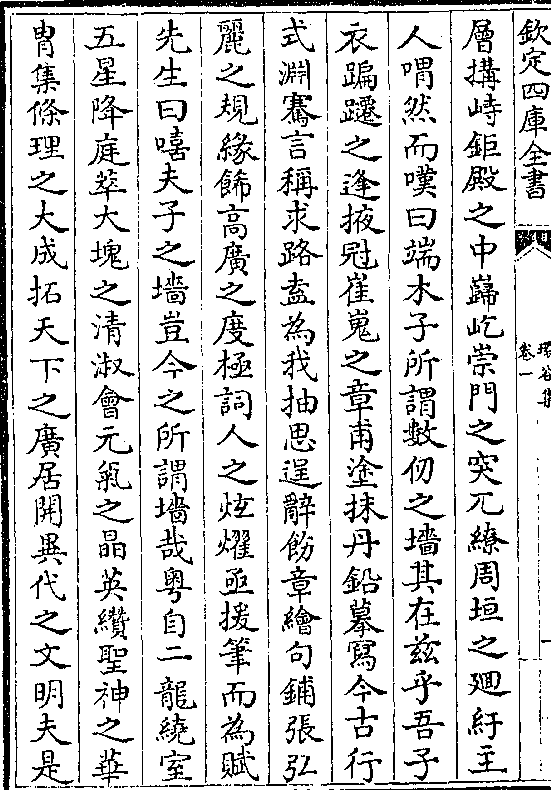 欽定四庫全書
環谷集
卷一
層搆峙鉅殿之中巋屹崇門之突兀繚周垣之廻紆主
人喟然而嘆曰端木子所謂數仞之墻其在兹乎吾子
衣蹁躚之逢掖冠崔嵬之章甫塗抹丹鉛摹寫今古行
式淵騫言稱求路盍為我抽思逞辭飭章繪句鋪張弘
麗之規緣餙高廣之度極詞人之炫燿亟援筆而為賦
先生曰嘻夫子之墻豈今之所謂墻哉粤自二龍繞室
五星降庭萃大塊之清淑會元氣之晶英纘聖神之華
胄集條理之大成拓天下之廣居開異代之文明夫是